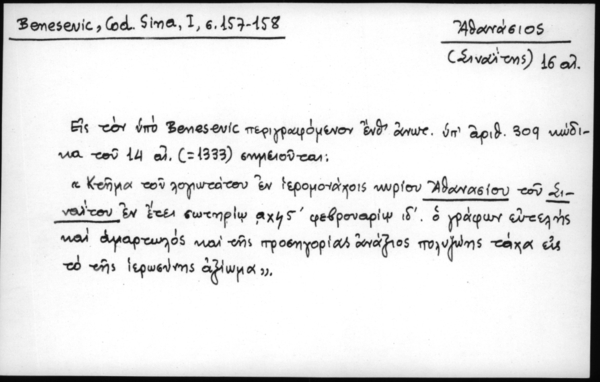 Benesevic, Cod. Sina, I, σ. 157-158
Ἀθανάσιος
(Σιναΐτης) 16 αἰ.
Εἰς τὸν ὑπὸ Benesevic περιγραφόμενον ἔνθ' ἀνωτ. ὑπ' ἀριθ. 309 κώδι-
κα τοῦ 14 αἰ. (=1333) σημειοῦται:
« Κτῆμα τοῦ λογιωτάτου ἐν ἱερομονάχοις κυρίου Ἀθανασίου τοῦ Σι-
ναΐτου ἐν ἔτει σωτηρίῳ ͵αχϟ5´ φεβρουαρίῳ ιδ´. ὁ γράφων εὐτελὴς
καὶ ἁμαρτωλὸς καὶ τῆς προσηγορίας ἀνάξιος πολυζώης τάχα εἰς
τὸ τῆς ἱερωσύνης ἀξίωμα».